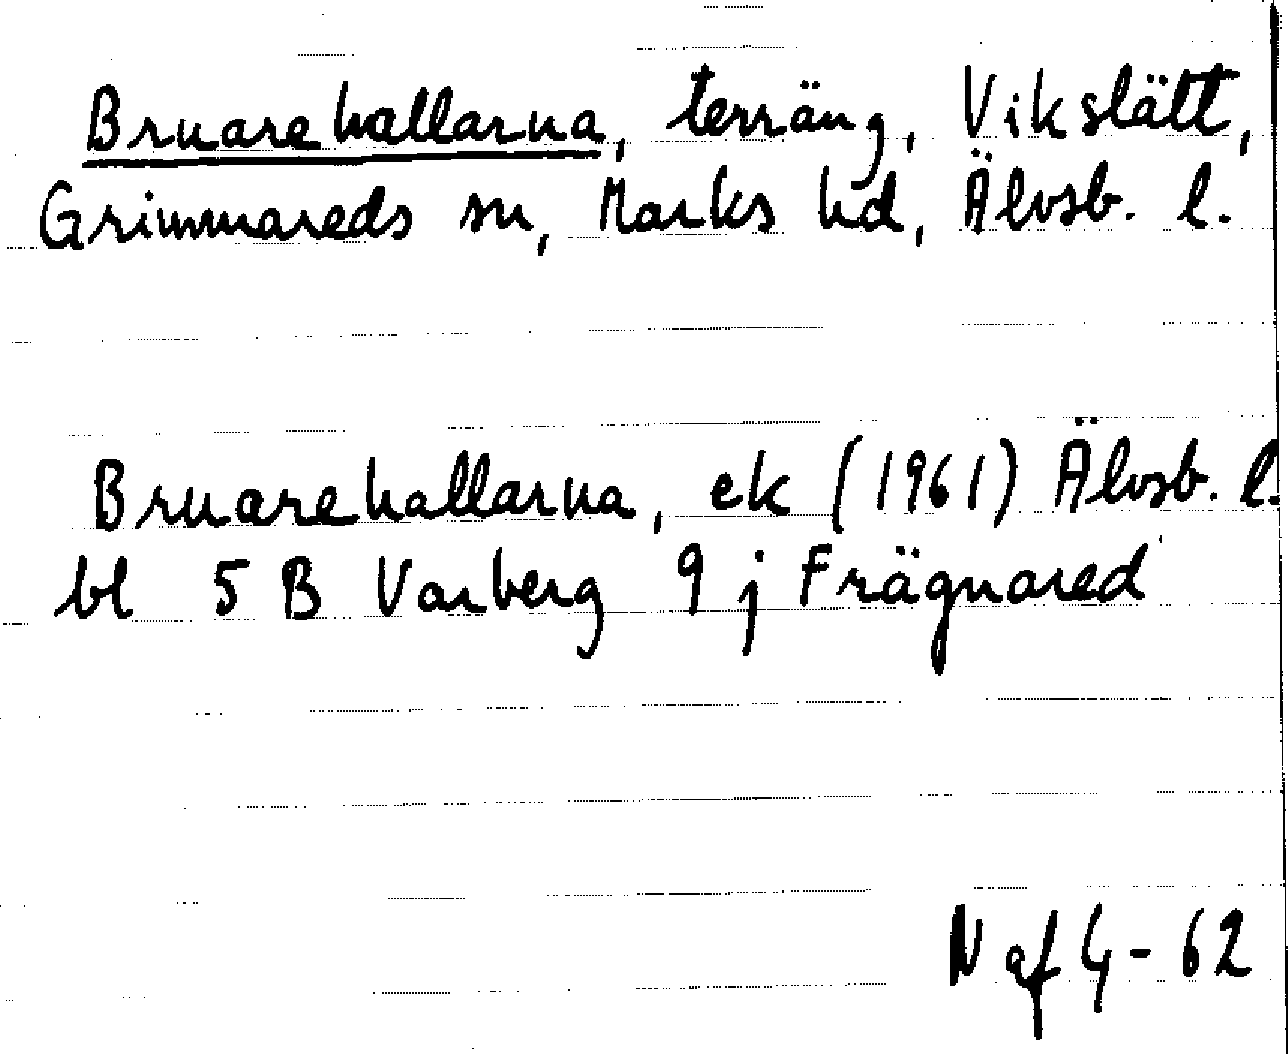 Bruarehallarna, terräng, Vikslätt,
Grimmareds sn, Marks hd, Älvsb. l.
Bruarehallarna, ek (1961) Älvsb. l.
bl 5 B Varberg 9 j Frägnared
N af G - 62